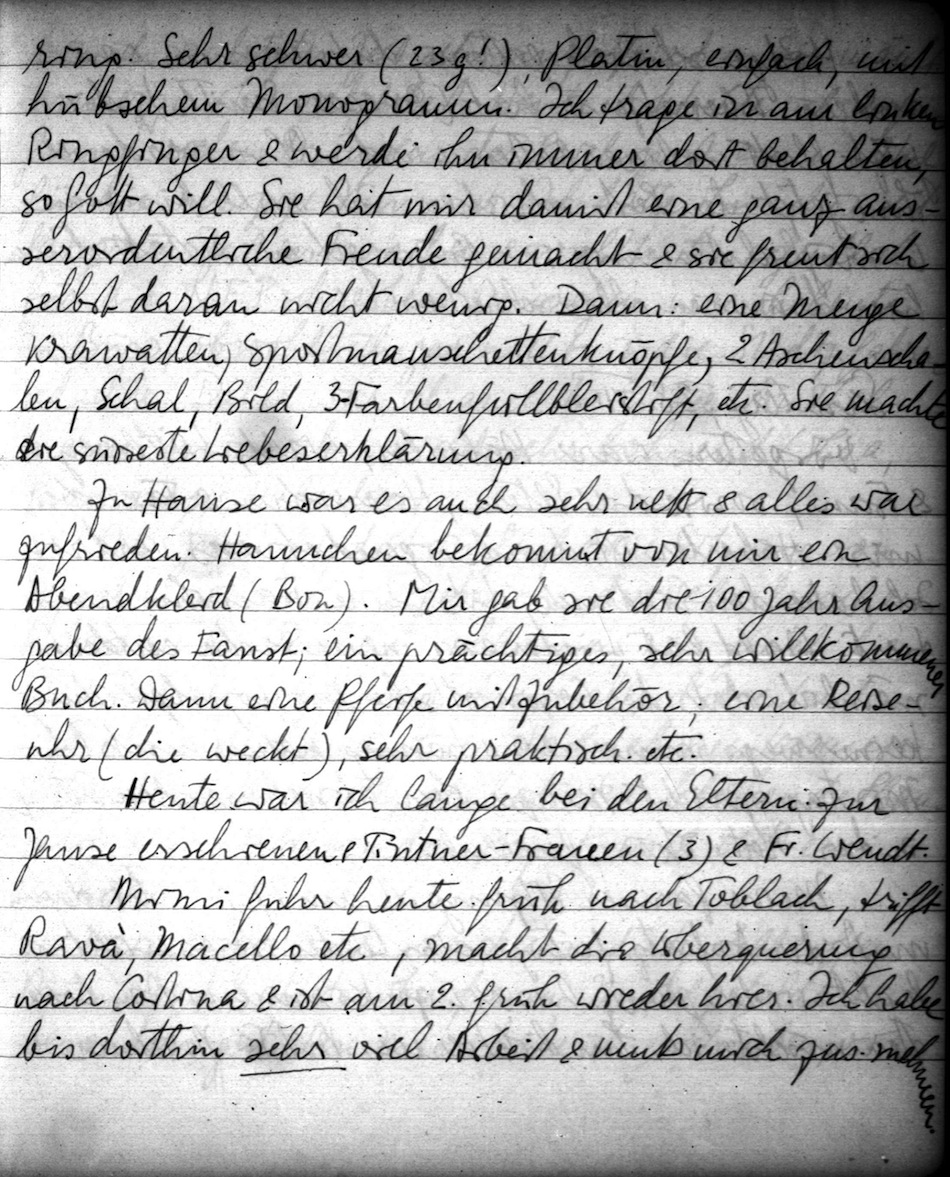 ring. Sehr schwer (23g!), Platin, einfach, mit
hübschem Monogramm. Ich trage in am linken
Ringfinger & werde ihn immer dort behalten,
so Gott will. Sie hat mir damit eine ganz aus-
serordentliche Freude gemacht & sie freut sich
selbst daran nicht wenig. Dann: eine Menge
Krawatten, Sportmanschettenknöpfe, 2 Aschenscha-
len, Schal, Bild, 3-Farbenfüllbleistift, etc. Sie machte
die süsseste Liebeserklärung.
Zu Hause war es auch sehr nett & alles war
zufrieden. Hannchen bekommt von mir ein
Abendkleid (Bon). Mir gab sie die 100 Jahr Aus-
gabe des Faust; ein prächtiges, sehr willkommenes
Buch. Dann eine Pfeife mit Zubehör; eine Reise-
uhr (die weckt), sehr praktisch. etc.
Heute war ich lange bei den Eltern. Zur
Jause erschienen Tintner-Frauen (3) & Fr. Wendt.
Mimi fuhr heute früh nach Toblach, trifft
Ravà, Macello etc, macht die Überquerung
nach Cortina & ist am 2. früh wieder hier. Ich habe
bis dorthin sehr viel Arbeit & muß mich zus. nehmen.